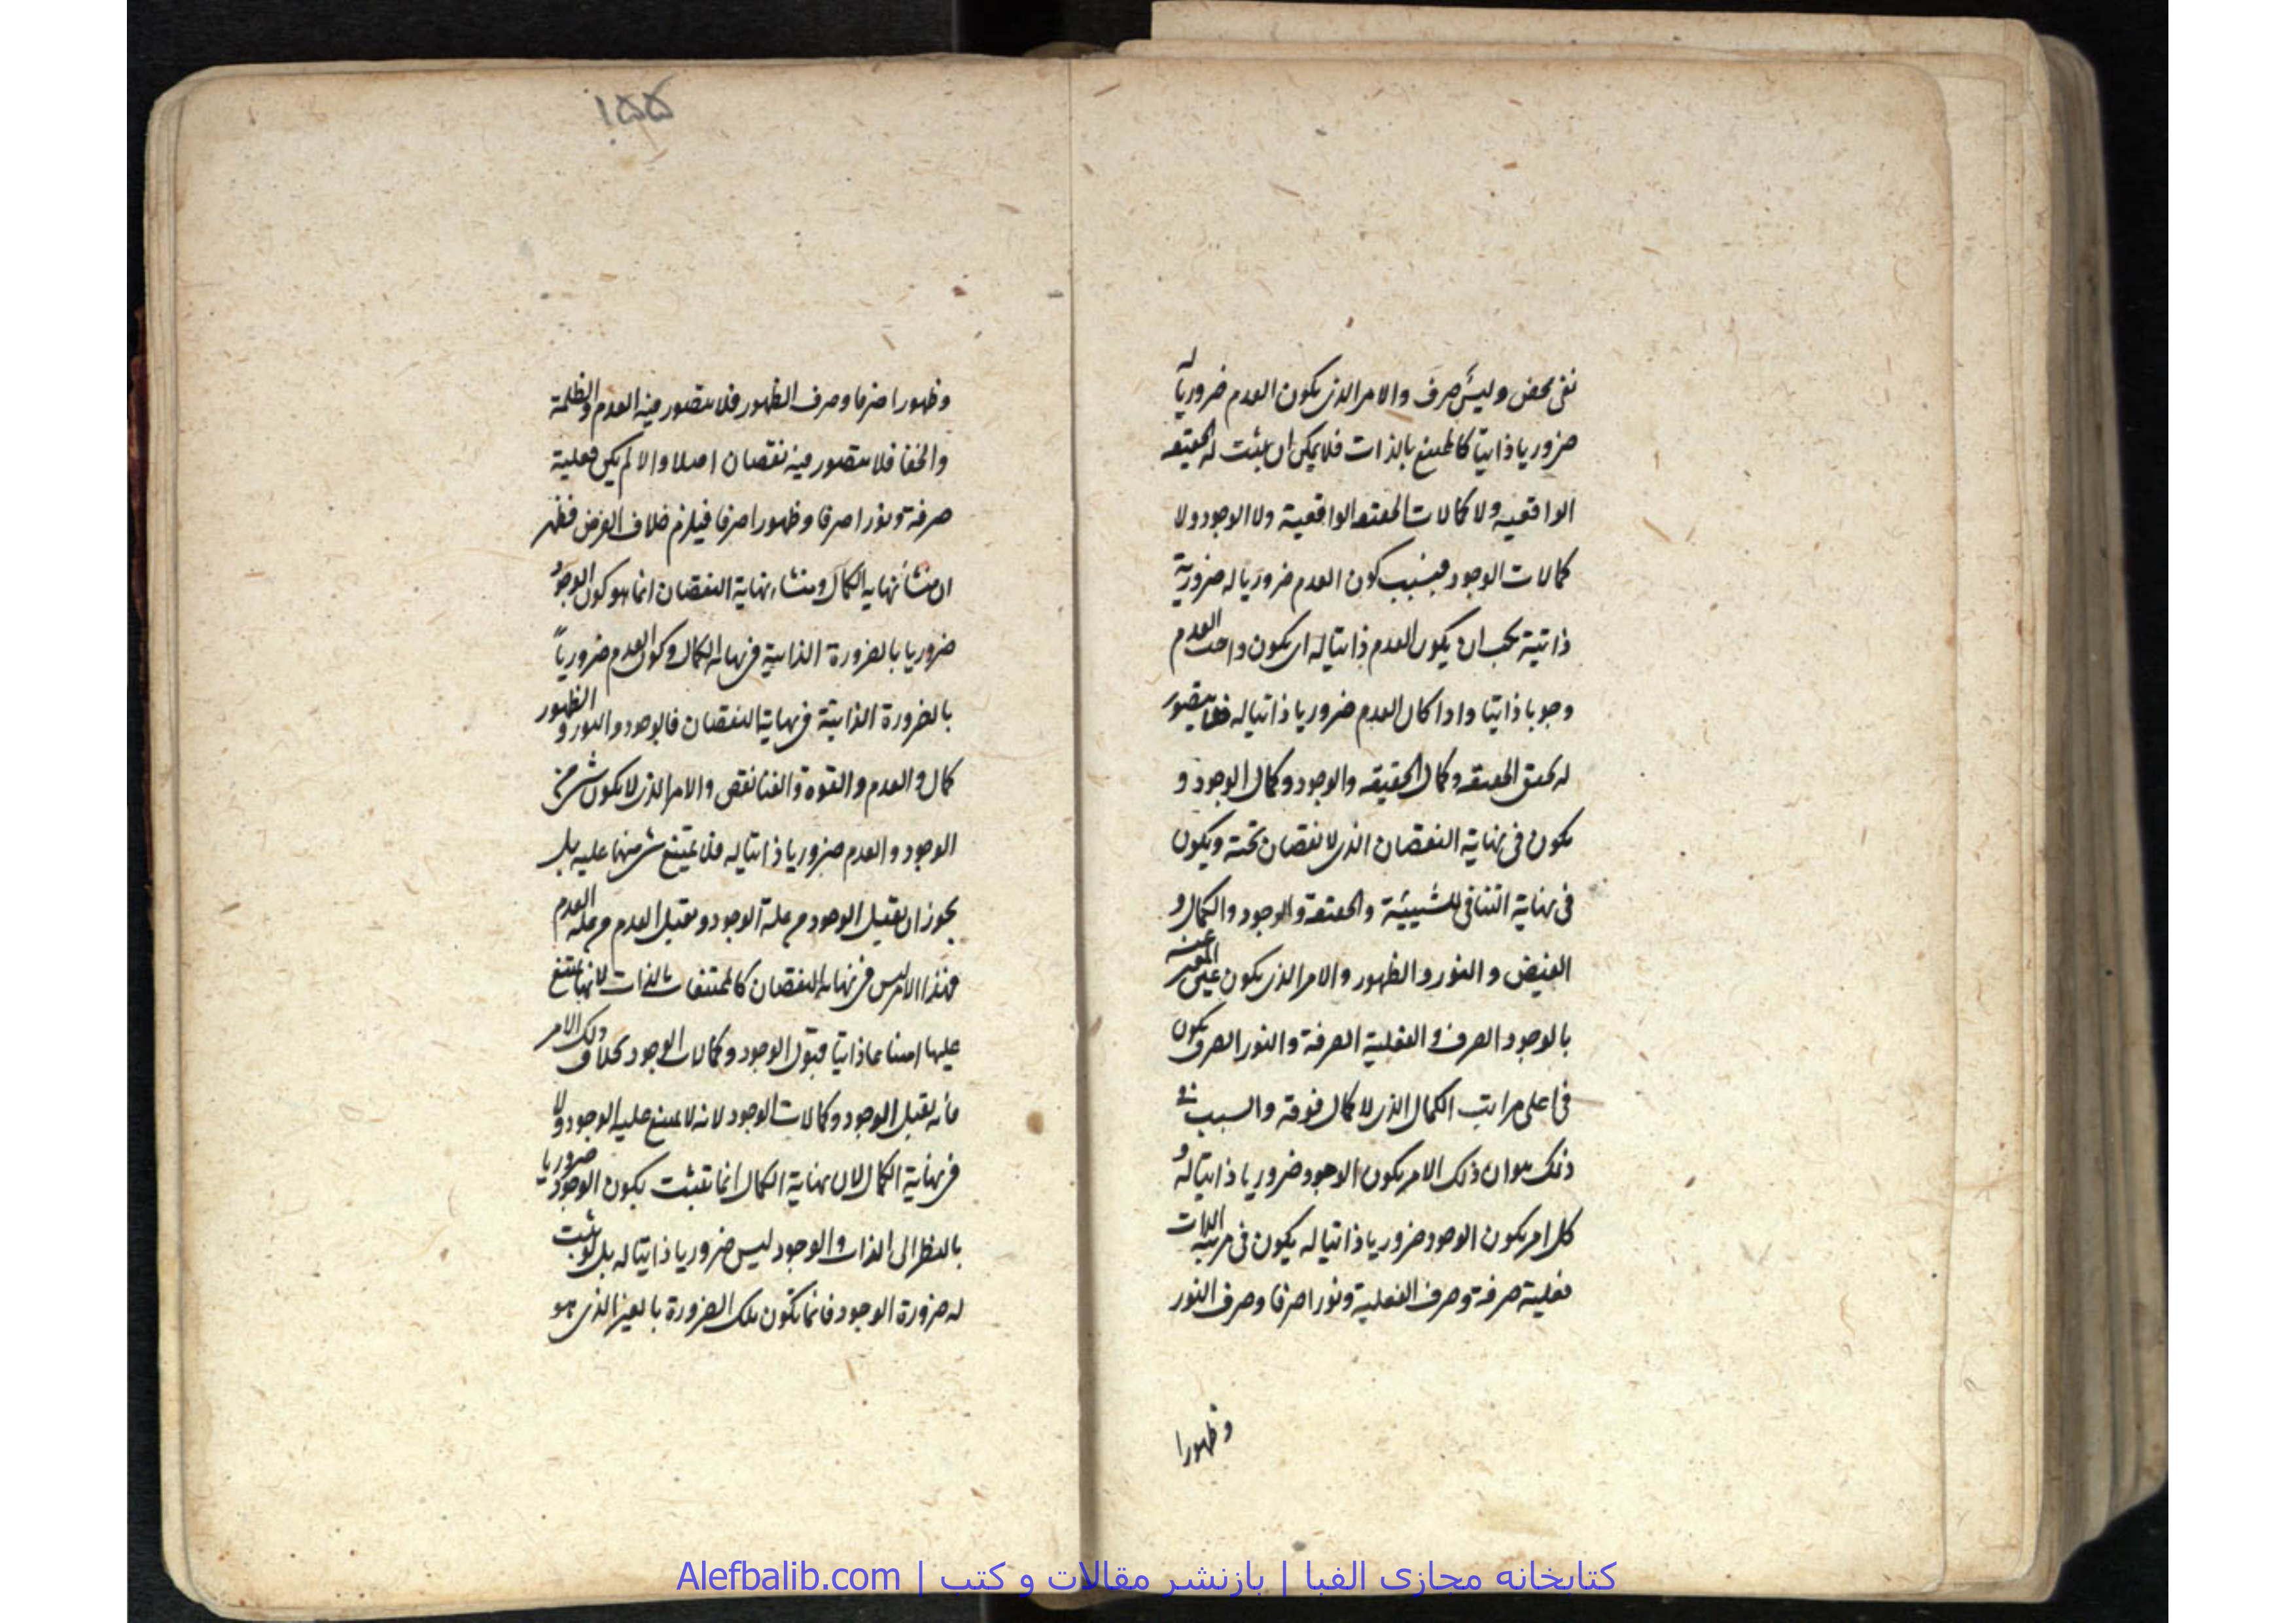 نفی محض ولیس صرف والامر الذی یکون العدم ضروریا له
ضروریا ذاتیا کالممتنع بالذات فلا یمکن ان یثبت له الحقیقه
الواقعیه ولا کمالات الحقیقه الواقعیة ولا الوجود ولا
کمالات الوجود فبسبب کون العدم ضروریا له ضروریة
ذاتیة یجب ان یکون العدم ذاتیا له ای یکون واجب العدم
وجوبا ذاتیا واذا کان العدم ضروریا ذاتیا له فلا یتصور
له تحقق الحقیقه وکمال الحقیقه والوجود وکمال الوجود و
یکون فی نهایة النقصان الذی لا نقصان تحته ویکون
فی نهایة التنافی للشیئیة والحقیقة والوجود والکمال و
الفیض والنور والظهور والامر الذی یکون عین المعبر عنه
بالوجود الصرف والفعلیة الصرفة والنور الصرف یکون
فی اعلی مراتب الکمال الذی لا کمال فوقه والسبب فی
ذلک هو ان ذلک الامر یکون الوجود ضروریا ذاتیا له و
کل امر یکون الوجود ضروریا ذاتیا له یکون فی مرتبة الذات
فعلیة صرفة وصرف الفعلیة ونورا صرفا وصرف النور
وظهورا
۱۵۵
وظهورا صرفا وصرف الظهور فلا یتصور فیه العدم والظلمة
والخفا فلا یتصور فیه نقصان اصلا والا لم یکن فعلیة
صرفة ونورا صرفا وظهورا صرفا فیلزم خلاف الفرض فظهر
ان منشأ نهایة الکمال ومنشاء نهایة النقصان انما هو کون الوجود
ضروریا بالضرورة الذاتیة فی نهایة الکمال وکون العدم ضروریاً
بالضرورة الذاتیة فی نهایة النقصان فالوجود والنور والظهور
کمال والعدم والقوة والفنا نقص والامر الذی لا یکون شی من
الوجود والعدم ضروریا ذاتیا له فلا یمتنع شی منهما علیه بل
یجوز ان یقبل الوجود من علة الوجود ویقبل العدم من علة العدم
فهذا الامر لیس فی نهایة النقصان کالممتنعات بالذات لانها یمتنع
علیها امتناعا ذاتیا قبول الوجود وکمالات الوجود بخلاف ذلک الامر
فانه یقبل الوجود وکمالات الوجود لانه لا یمتنع علیه الوجود ولا
فی نهایة الکمال لان نهایة الکمال انما تثبت بکون الوجود ضروریا
بالنظر الی الذات والوجود لیس ضروریا ذاتیا له بل لو ثبت
له ضرورة الوجود فانما تکون تلک الضرورة بالغیر الذی هو
کتابخانه مجازی الفبا | بازنشر مقالات و کتب | Alefbalib.com